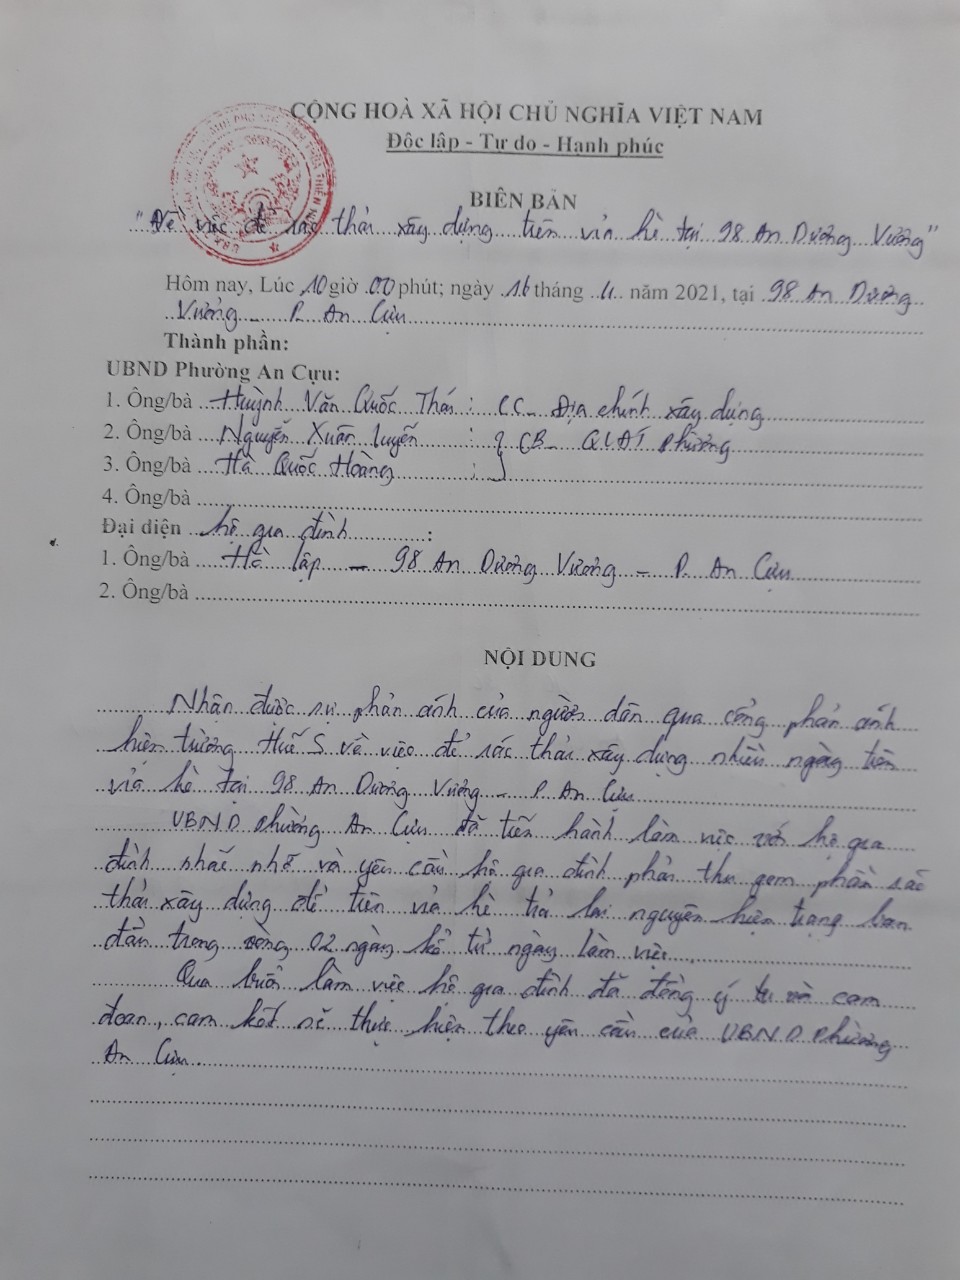 CỘNG HOÀ XÃ HỘI CHỦ NGHĨA VIỆT NAM
Độc lập - Tự do - Hạnh phúc
BIÊN BẢN
"Về việc để rác thải xây dựng trên vỉa hè tại 98 An Dương Vương"
Hôm nay, Lúc 10 giờ 00 phút; ngày 16 tháng 4 năm 2021, tại 98 An Dương
Vương - P. An Cựu
Thành phần:
UBND Phường An Cựu:
1. Ông/bà Huỳnh Văn Quốc Thái : CC- Địa chính xây dựng
2. Ông/bà Nguyễn Xuân Luyến : CB- QLĐT phường
3. Ông/bà Hà Quốc Hoàng :
4. Ông/bà
Đại diện hộ gia đình :
1. Ông/bà Hồ Lập - 98 An Dương Vương - P. An Cựu
2. Ông/bà
NỘI DUNG
Nhận được sự phản ánh của người dân qua cổng phản ánh
hiện trường Huế S về việc để rác thải xây dựng nhiều ngày trên
vỉa hè tại 98 An Dương Vương - P. An Cựu
UBND phường An Cựu đã tiến hành làm việc với hộ gia
đình nhắc nhở và yêu cầu hộ gia đình phải thu gom phần rác
thải xây dựng để trên vỉa hè trả lại nguyên hiện trạng ban
đầu trong vòng 02 ngày kể từ ngày làm việc.
Qua buổi làm việc hộ gia đình đã đồng ý và cam
đoan, cam kết sẽ thực hiện theo yêu cầu của UBND phường
An Cựu